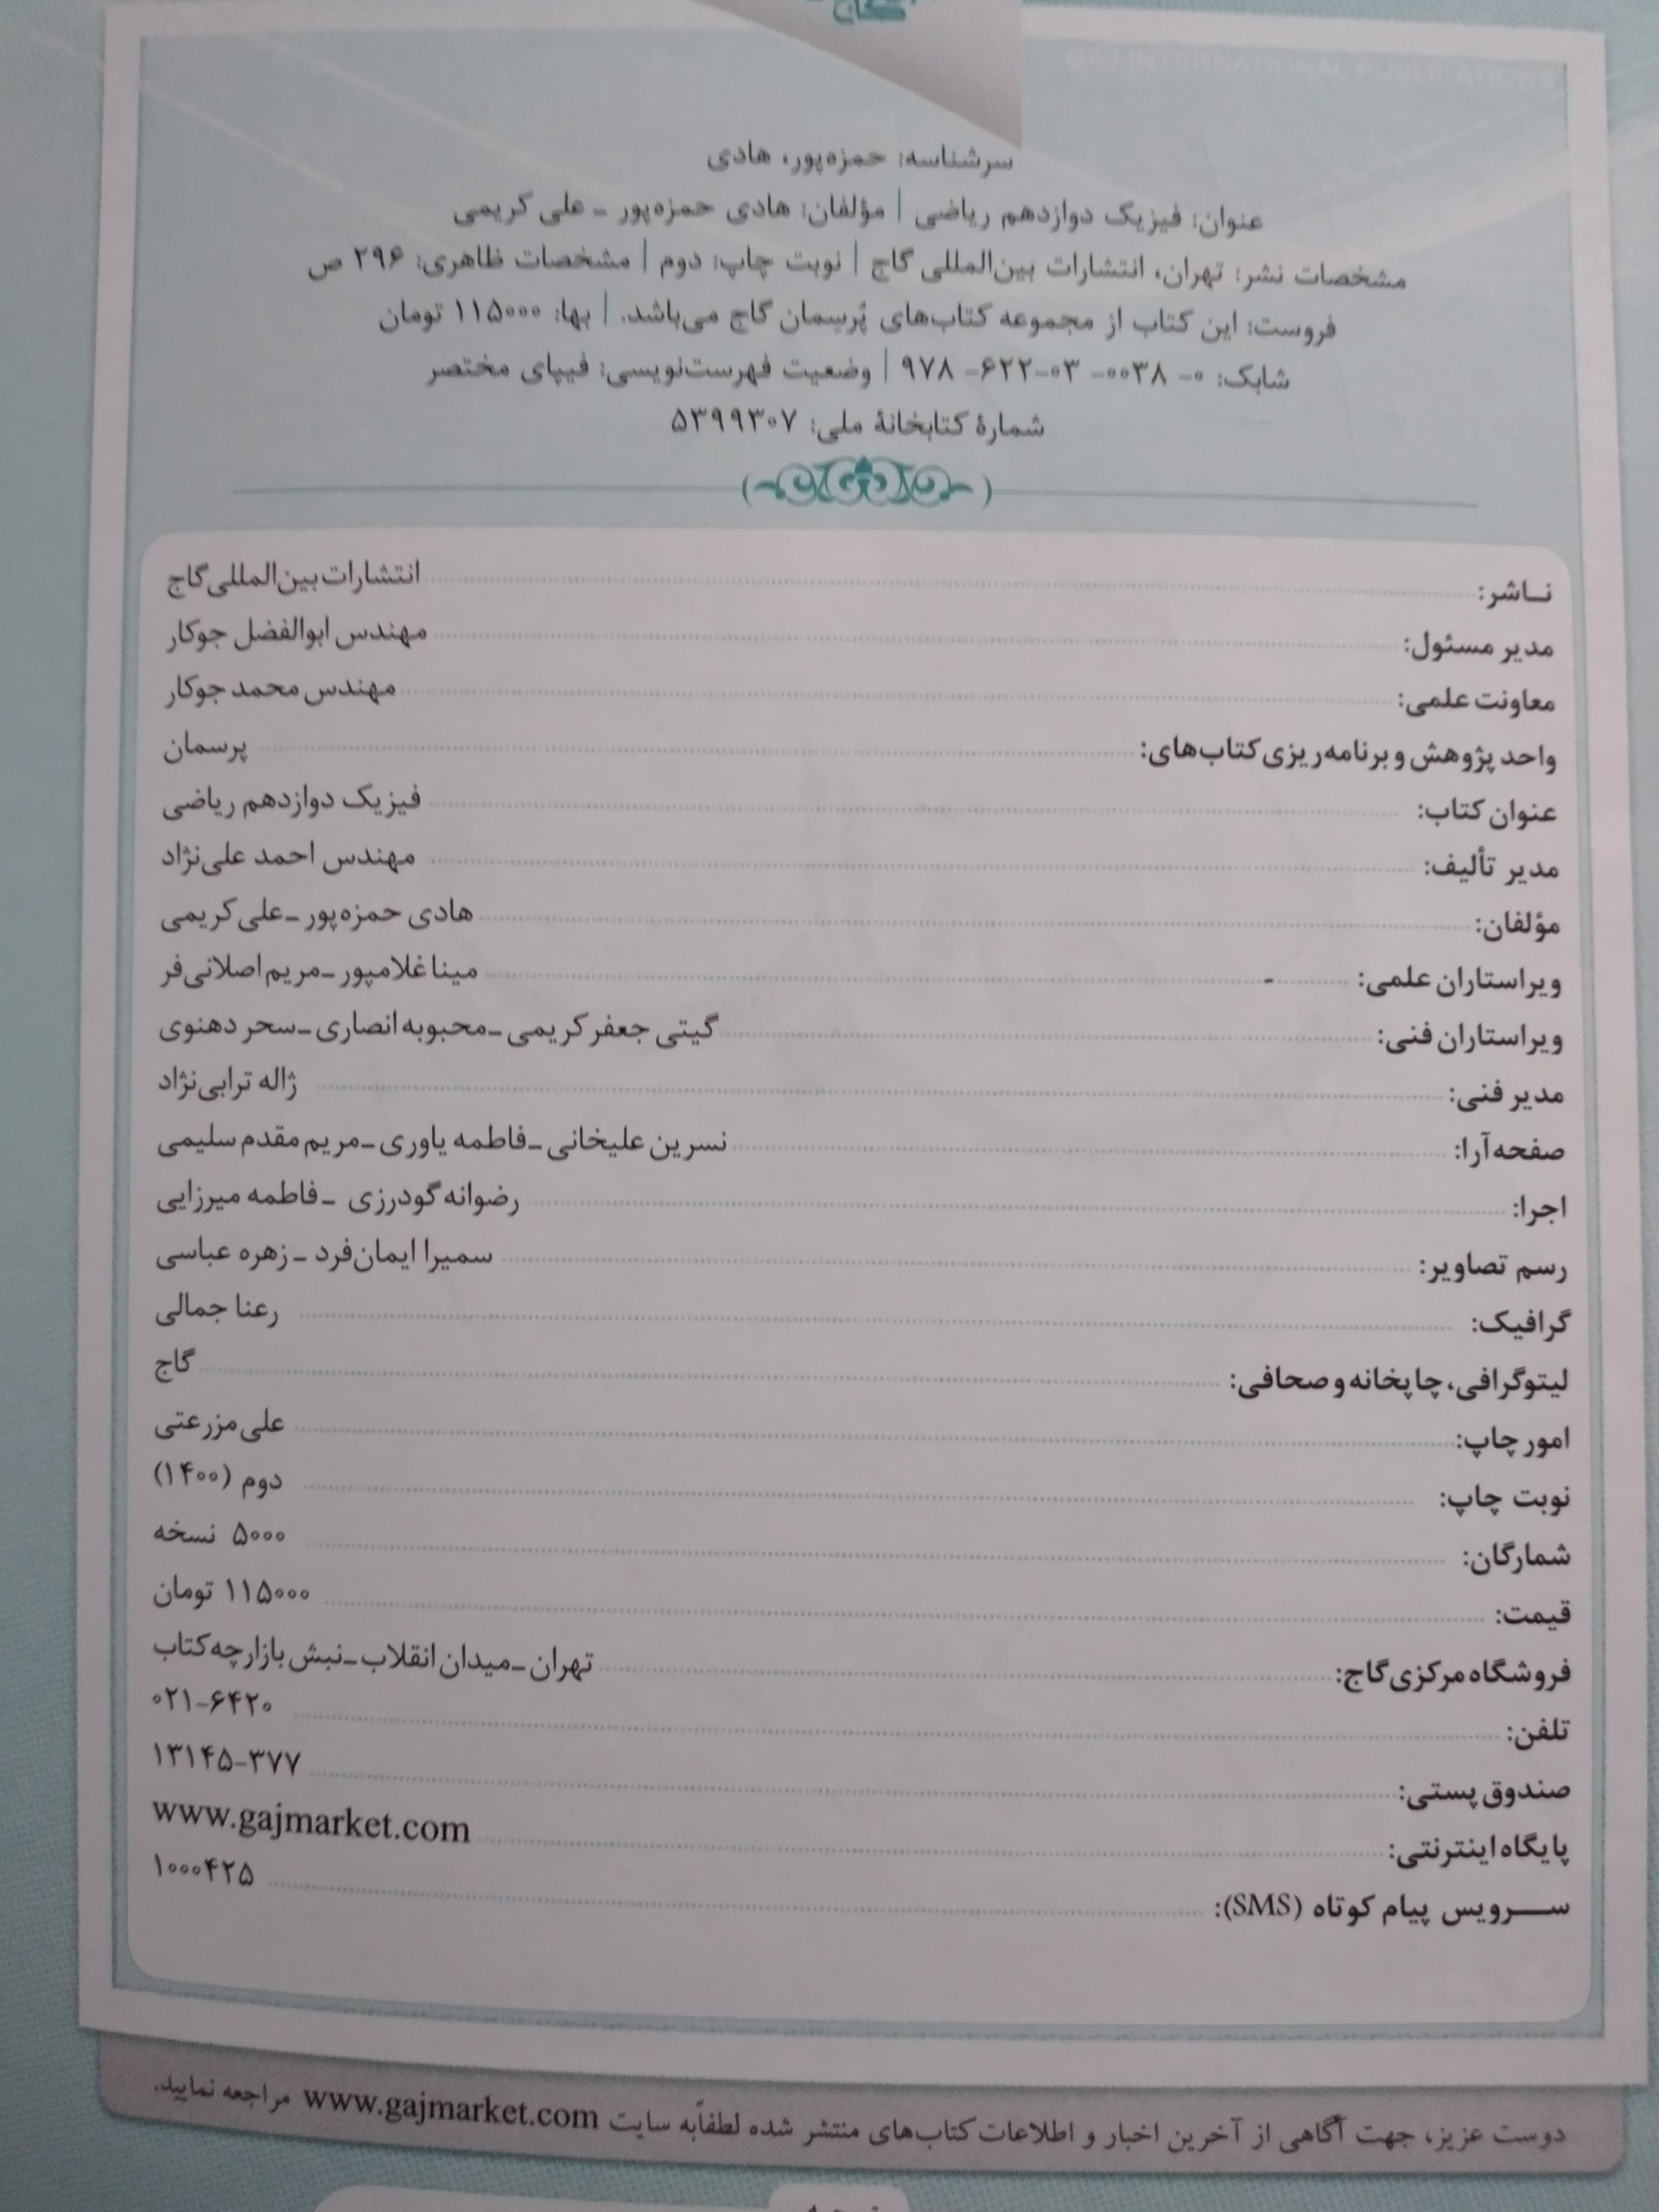 گاج
GAJ INTERNATIONAL PUBLICATIONS
سرشناسه: حمزه‌پور، هادی
عنوان: فیزیک دوازدهم ریاضی | مؤلفان: هادی حمزه‌پور ـ علی کریمی
مشخصات نشر: تهران، انتشارات بین‌المللی گاج | نوبت چاپ: دوم | مشخصات ظاهری: ۲۹۶ ص
فروست: این کتاب از مجموعه کتاب‌های پُرسِمان گاج می‌باشد. | بها: ۱۱۵۰۰۰ تومان
شابک: ۰- ۰۰۳۸- ۰۳-۶۲۲- ۹۷۸ | وضعیت فهرست‌نویسی: فیپای مختصر
شمارهٔ کتابخانهٔ ملی: ۵۳۹۹۳۰۷
نــاشر: انتشارات بین‌المللی گاج
مدیر مسئول: مهندس ابوالفضل جوکار
معاونت علمی: مهندس محمد جوکار
واحد پژوهش و برنامه‌ریزی کتاب‌های: پرسمان
عنوان کتاب: فیزیک دوازدهم ریاضی
مدیر تألیف: مهندس احمد علی‌نژاد
مؤلفان: هادی حمزه‌پور ـ علی کریمی
ویراستاران علمی: مینا غلامپور ـ مریم اصلانی‌فر
ویراستاران فنی: گیتی جعفر کریمی ـ محبوبه انصاری ـ سحر دهنوی
مدیر فنی: ژاله ترابی‌نژاد
صفحه‌آرا: نسرین علیخانی ـ فاطمه یاوری ـ مریم مقدم سلیمی
اجرا: رضوانه گودرزی ـ فاطمه میرزایی
رسم تصاویر: سمیرا ایمان‌فرد ـ زهره عباسی
گرافیک: رعنا جمالی
لیتوگرافی، چاپخانه و صحافی: گاج
امور چاپ: علی مزرعتی
نوبت چاپ: دوم (۱۴۰۰)
شمارگان: ۵۰۰۰ نسخه
قیمت: ۱۱۵۰۰۰ تومان
فروشگاه مرکزی گاج: تهران ـ میدان انقلاب ـ نبش بازارچه کتاب
تلفن: ۰۲۱-۶۴۲۰
صندوق پستی: ۱۳۱۴۵-۳۷۷
پایگاه اینترنتی: www.gajmarket.com
ســـرویس پیام کوتاه (SMS): ۱۰۰۰۴۲۵
دوست عزیز، جهت آگاهی از آخرین اخبار و اطلاعات کتاب‌های منتشر شده لطفاً به سایت www.gajmarket.com مراجعه نمایید.